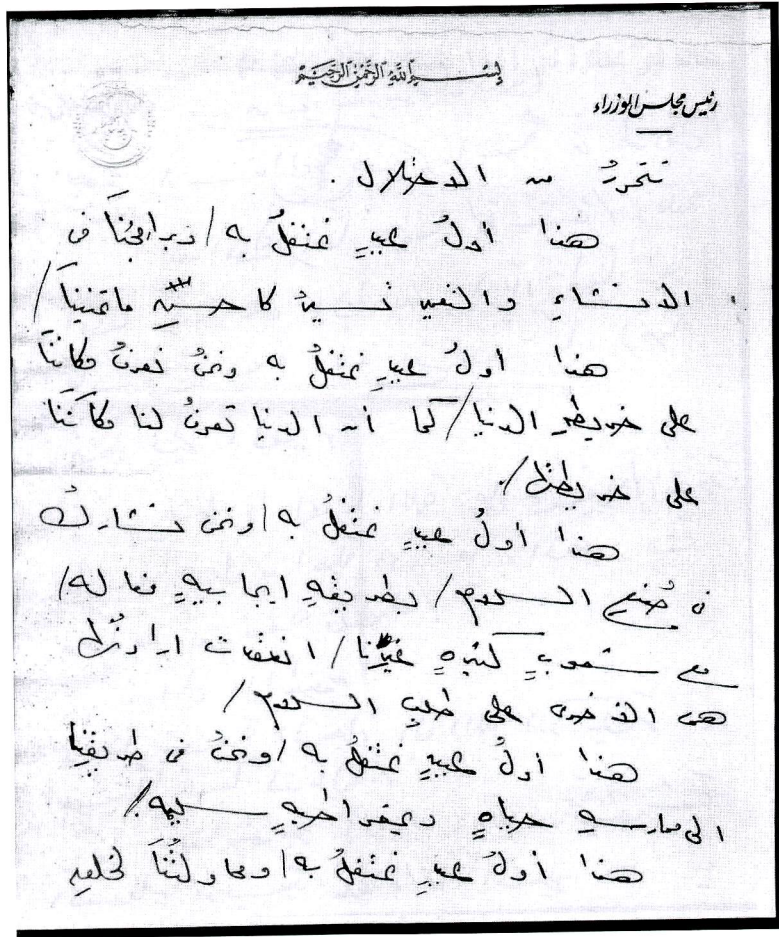 بسم الله الرحمن الرحيم
رئيس مجلس الوزراء
نتحررُ من الاحتلال .
هنا أولُ عيدٍ نحتفلُ به / وبرامجُنا في
الانشاءِ والتعمير تسيرُ كأحسنِ ما تمنينا /
هنا أولُ عيدٍ نحتفلُ به ونحنُ نعرفُ مكانَنا
على خريطةِ الدنيا / كما أن الدنيا تعرفُ لنا مكانَنا
على خريطتها /
هنا أولُ عيدٍ نحتفلُ به / ونحن نشاركُ
في صُنعِ السلام / بطريقةٍ ايجابيةٍ فعاله /
مع شعوبٍ كثيرهٍ غيرِنا / اتفقت ارادتُها
هى الاخرى على طلبِ السلام /
هنا أولُ عيدٍ نحتفلُ به / ونحنُ فى طريقِنا
الى ممارسهِ حياهٍ ديمقراطيهٍ سليمه /
هنا أولُ عيدٍ نحتفلُ به / ومحاولتُنا لخلقِ